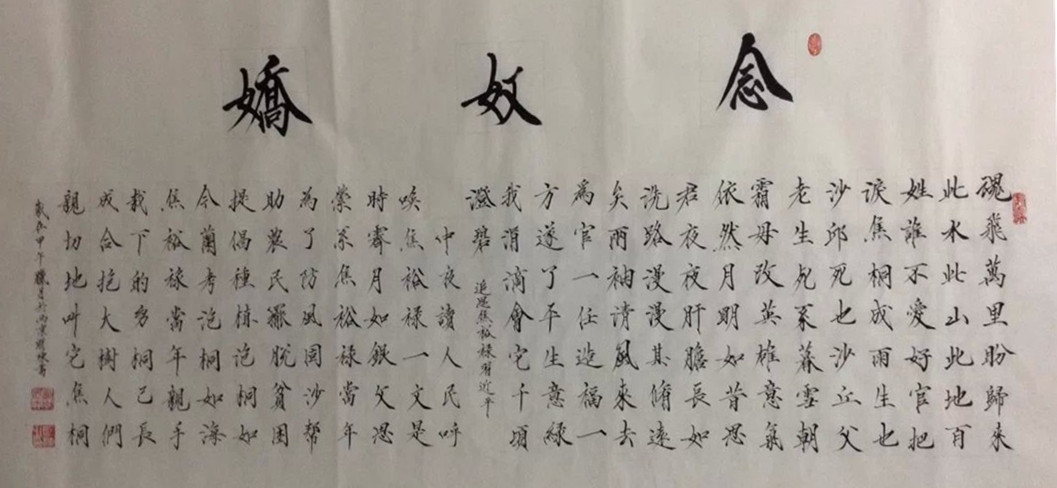 念奴嬌
魂飛萬里盼歸來
此水此山此地百
姓誰不愛好官把
淚焦桐成雨生也
沙邱死也沙丘父
老生死系暮雪朝
霜毋改英雄意氣
依然月明如昔思
君夜夜肝膽長如
洗路漫漫其脩遠
矣兩袖清風來去
為官一任造福一
方遂了平生意綠
我涓滴會它千頃
澄碧
追思焦裕祿習近平
中夜讀人民呼
喚焦裕祿一文是
時霽月如銀文思
縈系焦裕祿當年
為了防風固沙幫
助農民擺脫貧困
提倡種植泡桐如
今蘭考泡桐如海
焦裕祿當年親手
栽下的幼桐已長
成合抱大樹人們
親切地叫它焦桐
歲在甲午